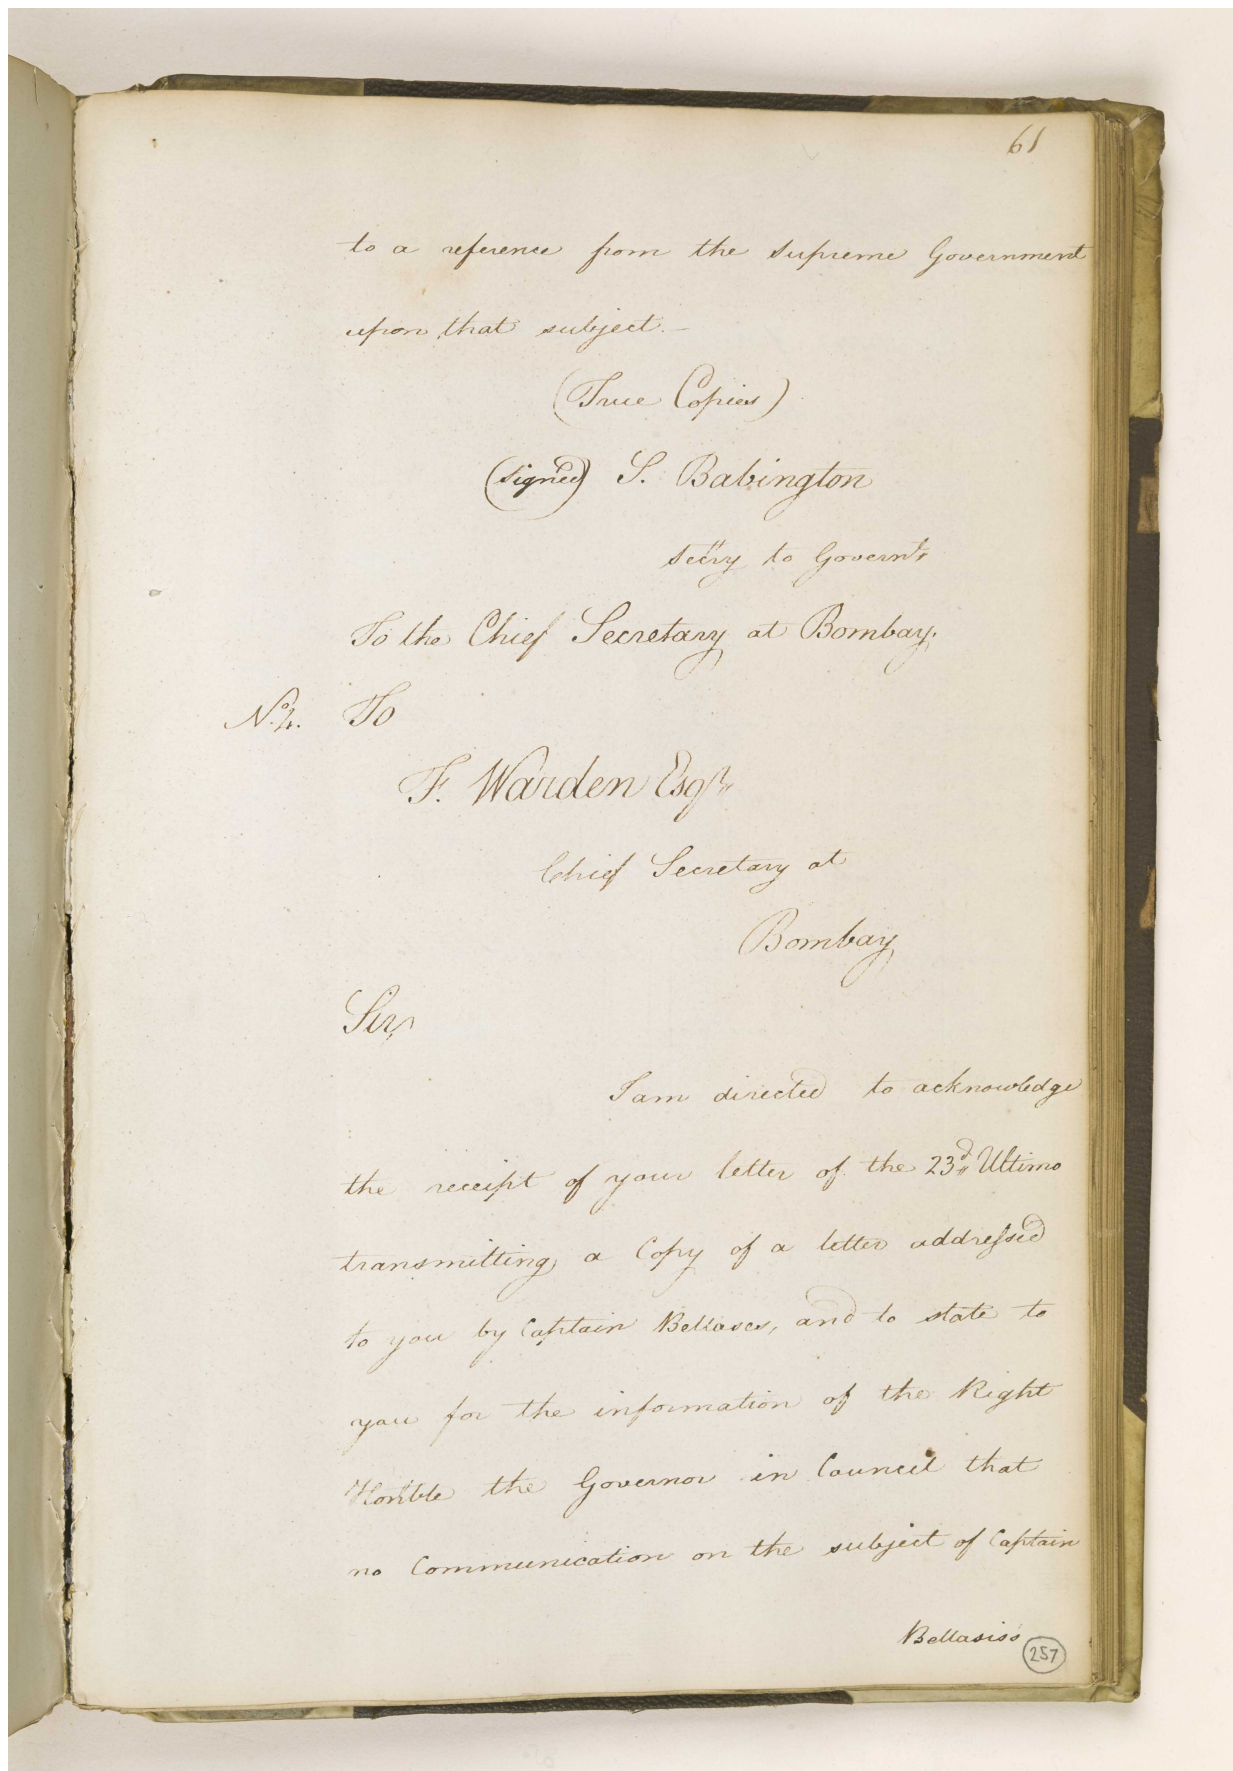 61
to a reference from the Supreme Government
upon that subject.—
(True Copies)
(Signed) S. Babington
Secry to Governt
To the Chief Secretary at Bombay.
No. 4. To
F. Warden Esqr
Chief Secretary at
Bombay
Sir,
I am directed to acknowledge
the receipt of your letter of the 23d Ultimo
transmitting a Copy of a letter addressed
to you by Captain Bellases, and to state to
you for the information of the Right
Honble the Governor in Council that
no Communication on the subject of Captain
Bellasiss
257